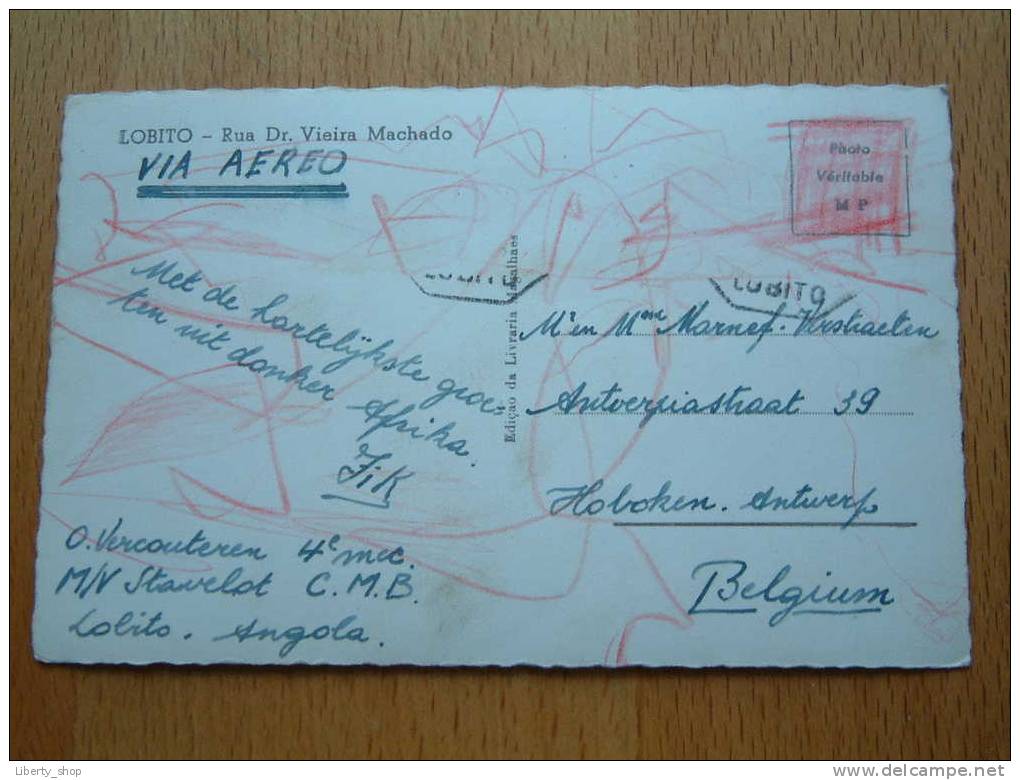 LOBITO – Rua Dr. Vieira Machado
VIA AEREO
Photo
Véritable
M P
LOBITO
LOBITO
Met de hartelijkste groe-
ten uit donker Afrika.
Fik
O. Vercouteren 4e mec.
M/V Stavelot C.M.B.
Lobito. Angola.
Edição da Livraria Magalhaes
Mr en Mme Marnef-Verstraeten
Antverpiastraat 39
Hoboken. Antwerp
Belgium
Liberty_shop
www.delcampe.net